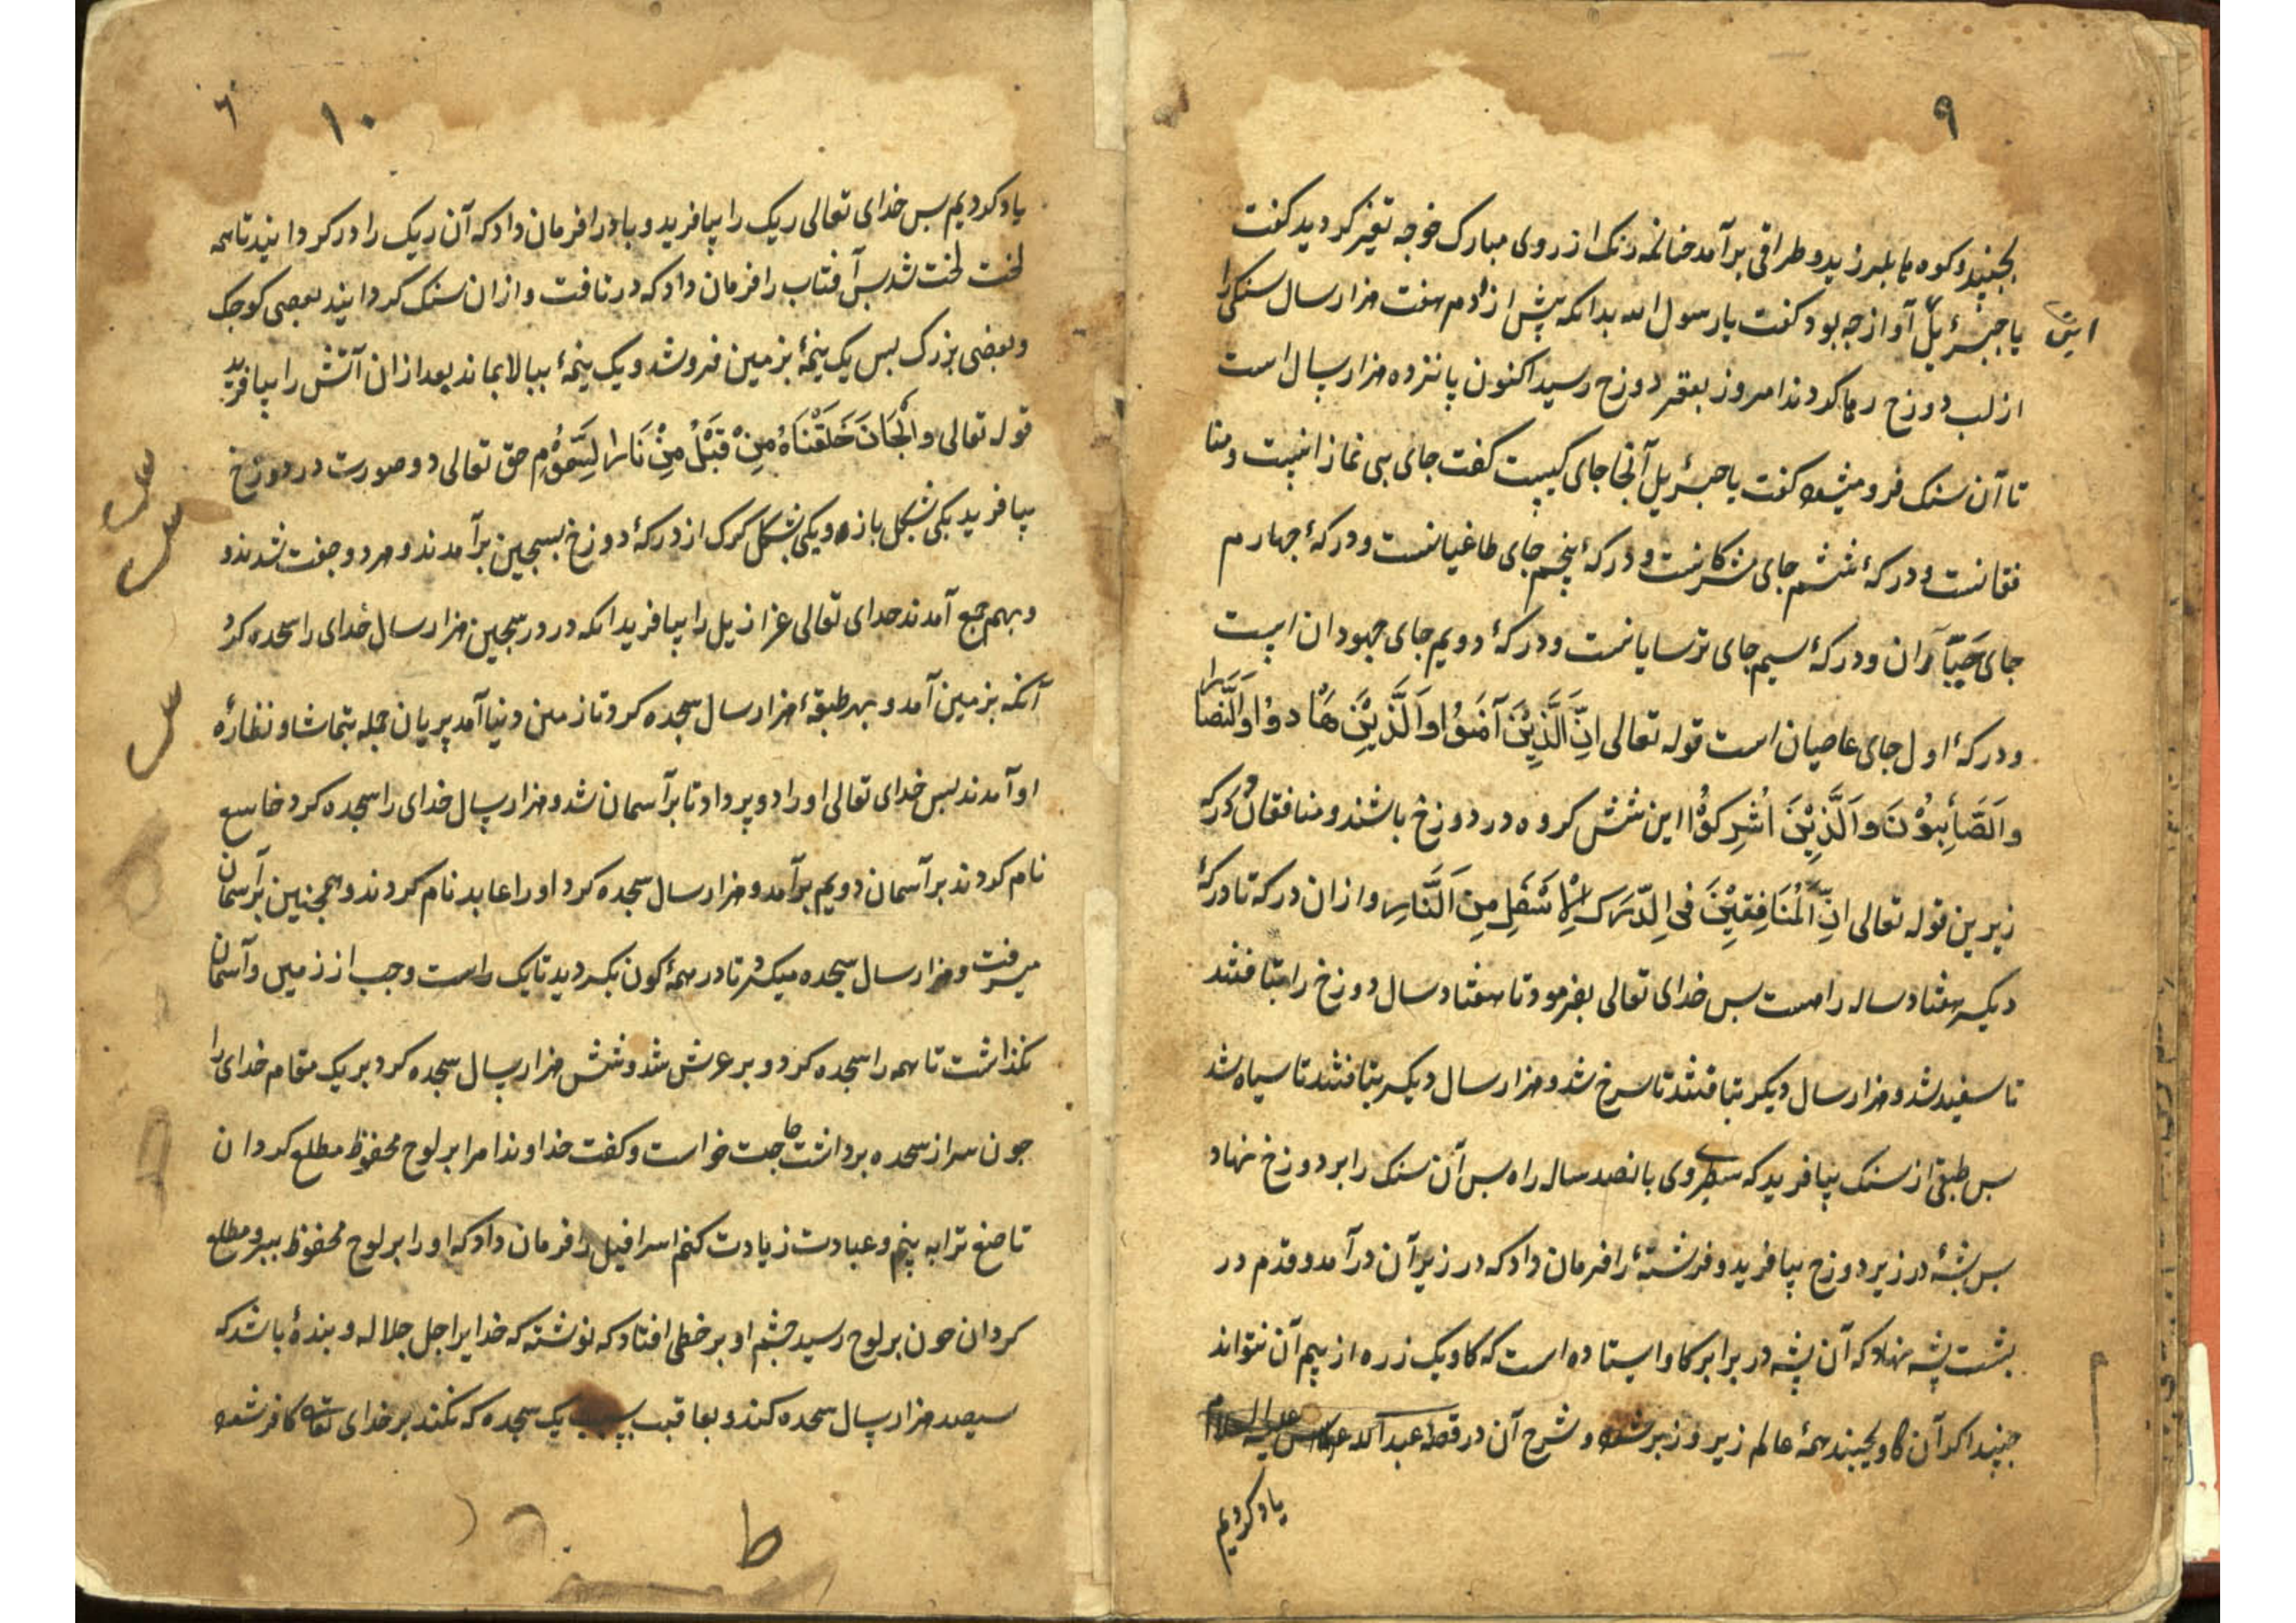 ۹
بجنبید و کوه ها بلرزید و طراقی برآمد حنانکه رنک از روی مبارک خوجه تغیر کردید کفت
این یا جبرئیل آواز جه بود کفت یا رسول الله بدانکه پیش از آدم هفت هزار سال سنکی را
از لب دوزخ رها کردند امروز بقعر دوزخ رسید اکنون پانزده هزار سال است
تا آن سنک فرو میشود کفت یا جبرئیل آنجا جای کیست کفت جای بی نمازانیست و منا
فقانست و درکهٔ ششم جای مشرکانست و درکهٔ پنجم جای طاغیانست و درکهٔ جهارم
جای جبّاران و درکهٔ سیم جای ترسایانست و درکهٔ دویم جای جهودان است
و درکهٔ اول جای عاصیان است قوله تعالی اِنَّ الَّذِیْنَ آمَنُوْا وَالَّذِیْنَ هَادُوْا وَالنَّصَارا
وَالصَّابِئُوْنَ وَالَّذِیْنَ اَشْرِکُوْا این شش کروه در دوزخ باشند و منافقان در درکه
زیرین قوله تعالی اِنَّ الْمُنَافِقِیْنَ فِی الدَّرَکِ الْاَسْفَلِ مِنَ النَّارِ و ازان درکه تا درکهٔ
دیکر هفتاد ساله راهست بس خدای تعالی بفرمود تا هفتاد سال دوزخ را بتافتند
تا سفید شد و هزار سال دیکر بتافتند تا سرخ شد و هزار سال دیکر بتافتند تا سیاه شد
بس طبقی از سنک بیافرید که سطبری وی بانصد ساله راه بس آن سنک را بر دوزخ نهاد
بس پشهٔ در زیر دوزخ بیافرید و فرشتهٔ را فرمان داد که در زیر آن درآمد و قدم در
بشت پشه نهاد که آن پشه در برابر کاو ایستاده است که کاو یک زره از بیم آن نتواند
جنبید اکر آن کاو بجنبد همهٔ عالم زیر و زبر شود و شرح آن در قصه عبدالله عباس علیه السلام
یاد کردیم
۱۰
یاد کردیم بس خدای تعالی ریک را بیافرید و باد را فرمان داد که آن ریک را در کردانید تا همه
لخت لخت شد بس آفتاب را فرمان داد که در تافت و ازان سنک کردانید بعضی کوجک
و بعضی بزرک بس یک نیمهٔ بزمین فرو شد و یک نیمهٔ ببالا بماند بعد ازان آتش را بیافرید
قوله تعالی وَالْجَانَ خَلَقْنَاهُ مِنْ قَبْلُ مِنْ نَارِ السَّمُوْمِ حق تعالی دو صورت در دوزخ
بیافرید یکی بشکل بازه و یکی بشکل کرک از درکهٔ دوزخ بسجین برآمدند و هر دو جفت شدند و
و بهم جمع آمدند خدای تعالی عزازیل را بیافرید انکه در در سجین هزار سال خدای را سجده کرد
آنکه بزمین آمد و بهر طبقهٔ هزار سال سجده کرد تا زمین دنیا آمد پریان جمله بتماشا و نظارهٔ
او آمدند بس خدای تعالی او را دو پر داد تا برآسمان شد و هزار سال خدای را سجده کرد خاشع
نام کردند بر آسمان دویم برآمد و هزار سال سجده کرد او را عابد نام کردند و همجنین بر آسمان
میرفت و هزار سال سجده میکرد تا در همهٔ کون بکردید تا یک راست وجب از زمین و آسمان
نکذاشت تا همه را سجده کرد و بر عرش شد و شش هزار سال سجده کرد بر یک مقام خدای را
جون سر از سجده برداشت حاجت خواست و کفت خداوندا مرا بر لوح محفوظ مطلع کردان
تا صنع ترا به بینم و عبادت زیادت کنم اسرافیل را فرمان داد که او را بر لوح محفوظ ببر و مطلع
کردان جون بر لوح رسید جشم او بر خطی افتاد که نوشته که خدایرا جل جلاله و بندهٔ باشد که
سیصد هزار سال سجده کند و بعاقبت بسبب یک سجده که نکند بر خدای تعالی کافر شود
ط